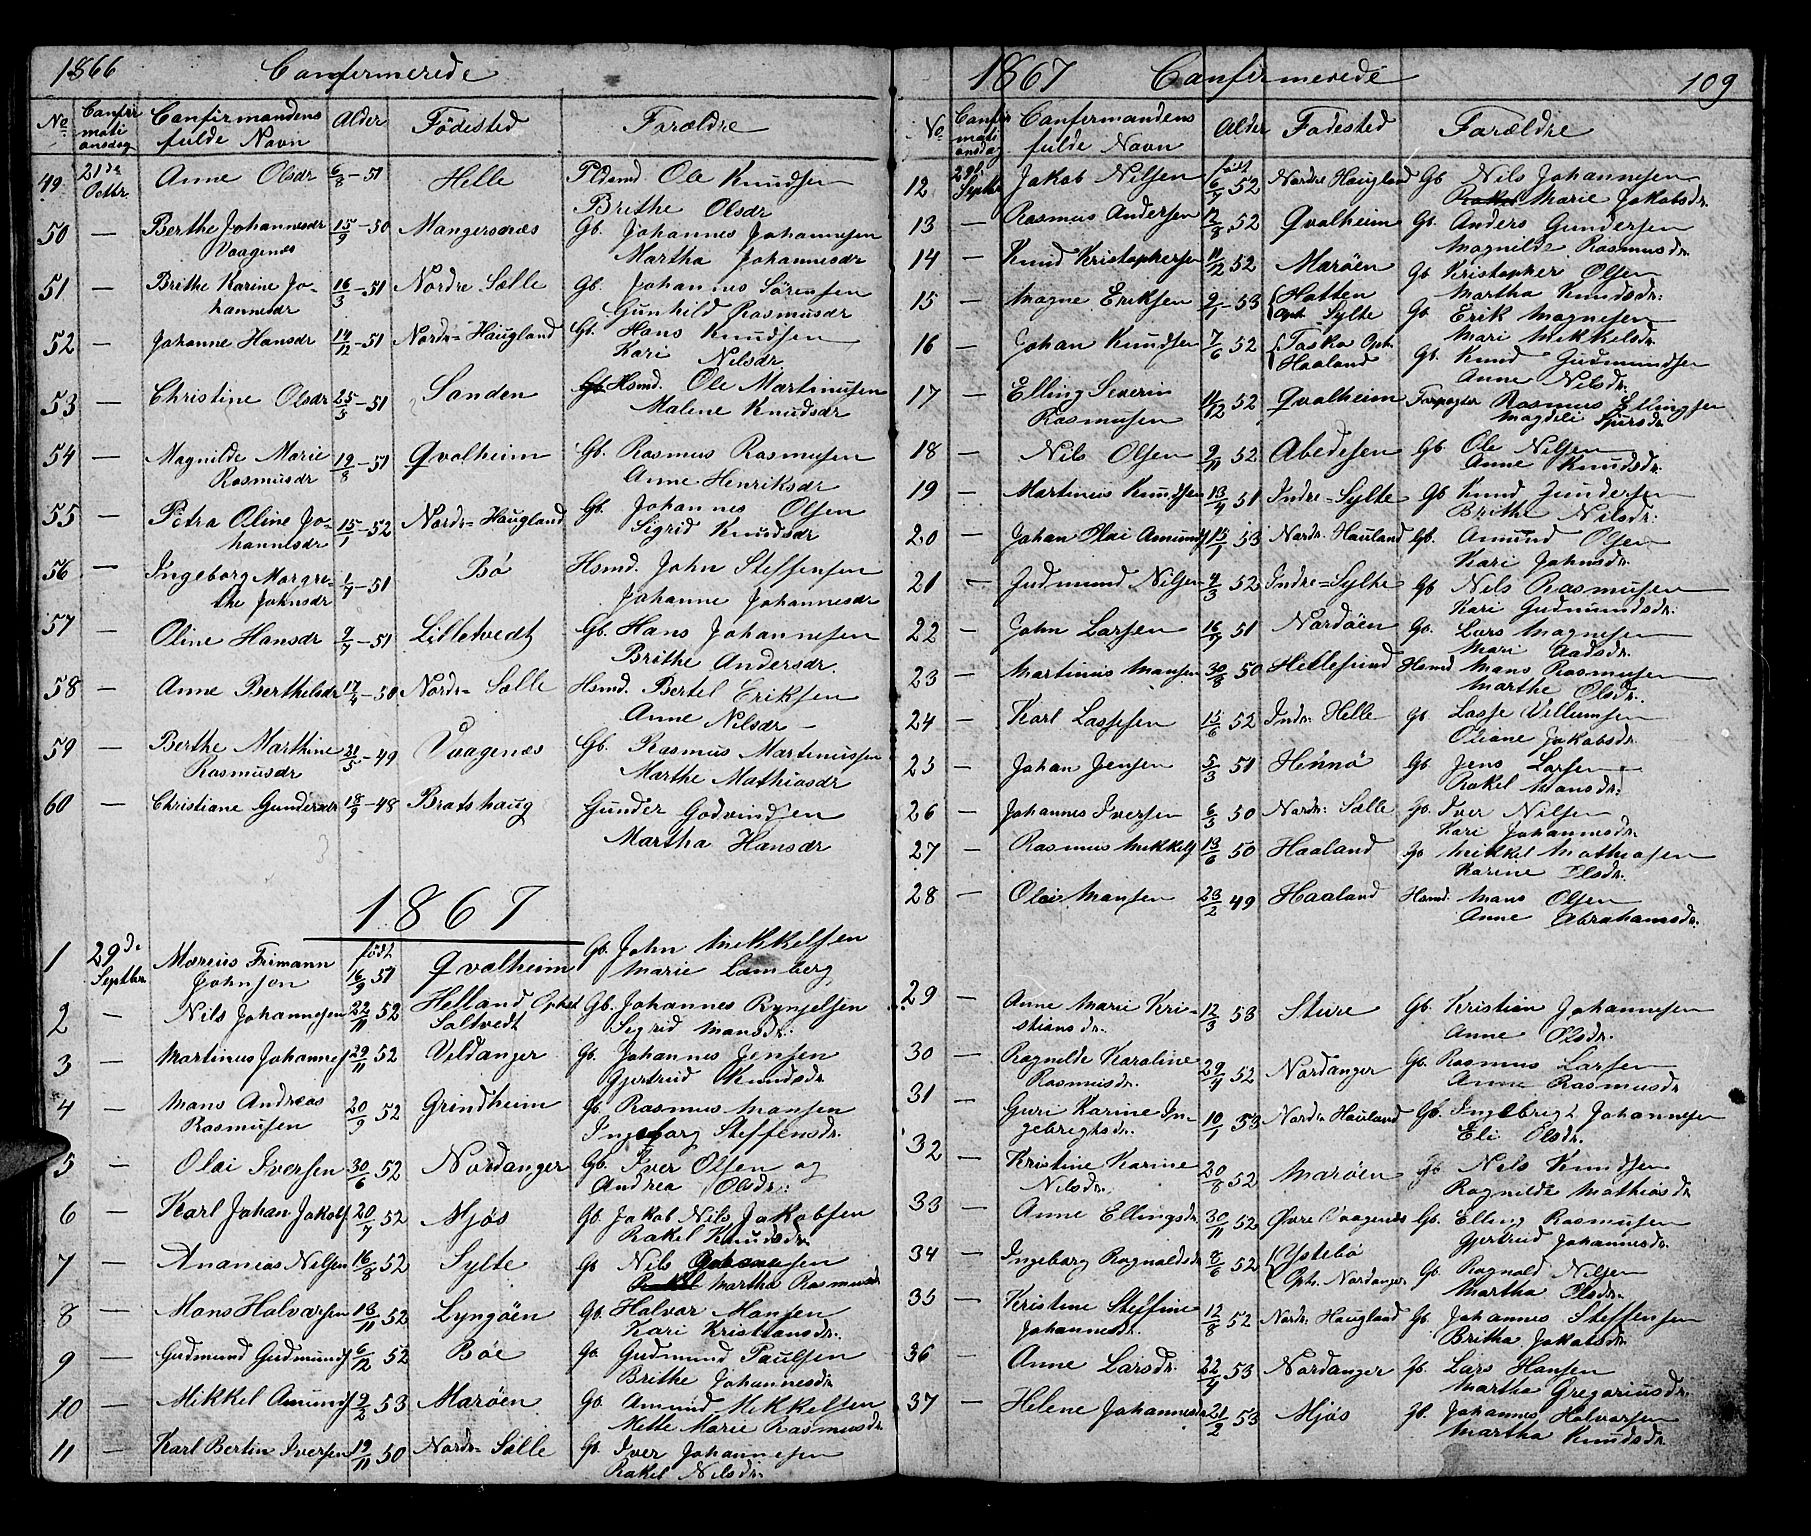 1866 Confirmerede
No Confirmationsdag Confirmandens fulde Navn Alder Fødested Forældre
49 21de Octbr Anne Olsdr 6/8 - 51 Helle Pldsmd. Ole Knudsen
Brithe Olsdr
50 — Berthe Johannesdr Vaagenæs 15/9 - 50 Mangersnæs Gb. Johannes Johannesen
Martha Johannesdr
51 — Brithe Karine Johannesdr 16/3 - 51 Nordre Sælle Gb. Johannes Sørensen
Gunhild Rasmusdr
52 — Johanne Hansdr 14/12 - 51 Nordre Haugland Gb. Hans Knudsen
Kari Nilsdr
53 — Christine Olsdr 25/5 - 51 Sanden Hsmd. Ole Martinusen
Malene Knudsdr
54 — Magnilde Marie Rasmusdr 19/8 - 51 Qvalheim Gb. Rasmus Rasmusen
Anne Henriksdr
55 — Petra Oline Johannesdr 15/1 - 52 Nordre Haugland Gb. Johannes Olsen
Sigrid Knudsdr
56 — Ingeborg Margrethe Johnsdr 1/7 - 51 Bö Hsmd. John Steffensen
Johanne Johannesdr
57 — Oline Hansdr 9/7 - 51 Lilletvedt Gb. Hans Johannesen
Brithe Andersdr.
58 — Anne Berthilsdr 17/4 - 50 Nordre Sælle Hsmd. Bertel Eriksen
Anne Nilsdr —
59 — Berthe Marthine Rasmusdr 21/5 - 49 Vaagenæs Gb. Rasmus Martinussen
Marthe Mathiasdr
60 — Christiane Gundersdr 18/9 - 48 Bratshaug Gunder Godvindsen
Martha Hansdr
1867
1 29de Septbr. Marcus Frimann Johnsen født 16/9 51 Qvalheim Gb. John Mikkelsen
Marie Lamberg
2 — Nils Johannesen 22/11 52 Helland Ophet Saltvedt Gb. Johannes
Sigrid Mansdr.
3 — Martinus Johannes 29/11 52 Veldanger Gb. Johannes Jensen
Gjertrud Knudsdr.
4 — Mans Andreas Rasmusen 20/9 52 Grindheim Gb. Rasmus Mansen
Ingeborg Steffensdr.
5 — Olai Iversen 30/6 52 Nordanger Gb. Iver Olsen og
Andrea Olsdr.
6 — Karl Johan Jakobs 20/7 52 Mjøs Gb. Jakob Nils Jakobsen
Rakel Knudsdr.
7 — Ananias Nilsen 16/8 52 Sylte Gb Nils Johannesen
Martha Rasmusdr
8 — Mons Halvorsen 13/11 52 Lyngøen Gb. Halvor Monsen
Kari Kristiansdr.
9 — Gudmund Gudmunds 6/12 52 Bøe Gb. Gudmund Paulsen
Brithe Johannesdr.
10 — Mikkel Amunds 9/2 53 Marøen Gb. Amund Mikkelsen
Mette Marie Rasmusdr.
11 — Karl Bertin Iversen 19/11 50 Nordre Sælle Gb. Iver Johannesen
Rakel Nilsdr.
1867 Confirmerede 109
No Confirmationsdag Confirmandens fulde Navn Alder Fødested Forældre
12 29de Septbr Jakob Nilsen født 6/9 52 Nordre Haugland Gb Nils Johannesen
Marie Jakobsdr.
13 — Rasmus Andersen 12/8 52 Qvalheim Gb. Anders Gundersen
Magnilde Rasmusdr.
14 — Knud Kristophersen 11/12 52 Marøen Gb Kristopher Olsen
Martha Knudsdr.
15 — Magne Eriksen 9/1 53 Hatten Oph. Sylte Gb. Erik Magnesen
Mari Mikkelsdr
16 — Johan Knudsen 7/6 52 Taska Oph. Haaland Gb. Knud Gudmundsen
Anne Nilsdr.
17 — Elling Severin Rasmusen 11/12 52 Qvalheim Forpagter Rasmus Ellingsen
Magdeli
18 — Nils Olsen 9/11 52 Abedesen Gb. Ole Nilsen
Anne Knudsdr.
19 — Martinus Knudsen 13/4 51 Indre=Sylte Gb Knud Gundersen
Brithe Nilsdr.
20 — Johan Olai Amunds 15/1 53 Nordre Hauland Gb. Amund Olsen
Kari Johnsdr.
21 — Gudmund Nilsen 4/3 52 Indre=Sylte Gb Nils Rasmusen
Kari Gudmundsdr.
22 — John Larsen 16/9 51 Nordøen Gb. Lars Magnesen
Mari Aadsdr.
23 — Martinus Mansen 30/8 50 Hellesund Hsmd Mans Rasmusen
Marthe Olsdr.
24 — Karl Lassesen 15/6 52 Indre Helle Gb. Lasse Villumsen
Oliane Jakobsdr.
25 — Johan Jensen 5/3 51 Hennø Gb Jens Larsen
Rakel Mansdr.
26 — Johannes Iversen 6/3 50 Nordre Sælle Gb. Iver Nilsen
Kari Johannesdr.
27 — Rasmus Mikkels 13/6 50 Haaland Gb Mikkel Mathiasen
Karine Olsdr.
28 — Olai Mansen 23/2 49 Haaland Hsmd. Mans Olsen
Anne Abrahamsdr.
29 — Anne Marie Kristiansdr. 12/3 53 Sture Gb. Kristian Johannesen
Anne Olsdr.
30 — Ragnilde Karoline Rasmusdr. 29/4 52 Nordanger Gb. Rasmus Larsen
Anne Rasmusdr
31 — Guri Karine Ingebrigtsdr. 10/1 53 Nordre Hauland Gb. Ingebrigt Johannesen
Eli Olsdr.
32 — Kristine Karine Nilsdr. 20/8 52 Marøen Gb. Nils Knudsen
Ragnilde Mathiasdr.
33 — Anne Ellingsdr. 30/11 52 Øvre Vaagenæs Gb. Elling Rasmusen
Gjertrud Johannesdr.
34 — Ingeborg Ragnaldsdr 8/6 52 Ystebø Oph. Nordanger Gb. Ragnald Nilsen
Martha Olsdr.
35 — Kristine Steffine Johannesdr. 12/8 52 Nordre Haugland Gb. Johannes Steffensen
Britha Jakobsdr.
36 — Anne Larsdr. 22/4 53 Nordanger Gb. Lars Hansen
Martha Gregoriusdr.
37 — Helene Johannesdr 21/2 53 Mjøs Gb. Johannes Halvorsen
Martha Knudsdr.